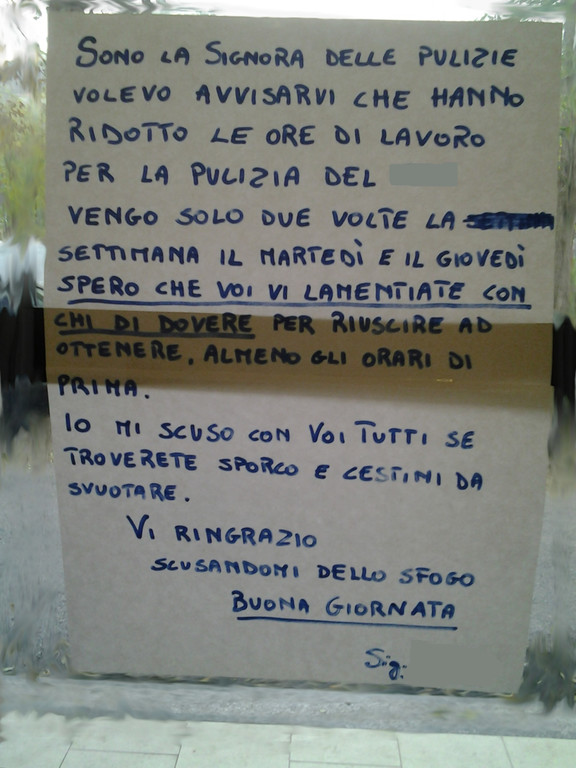 SONO LA SIGNORA DELLE PULIZIE
VOLEVO AVVISARVI CHE HANNO
RIDOTTO LE ORE DI LAVORO
PER LA PULIZIA DEL
VENGO SOLO DUE VOLTE LA
SETTIMANA IL MARTEDÌ E IL GIOVEDÌ
SPERO CHE VOI VI LAMENTIATE CON
CHI DI DOVERE PER RIUSCIRE AD
OTTENERE, ALMENO GLI ORARI DI
PRIMA.
IO MI SCUSO CON VOI TUTTI SE
TROVERETE SPORCO E CESTINI DA
SVUOTARE.
VI RINGRAZIO
SCUSANDOMI DELLO SFOGO
BUONA GIORNATA
Sig: